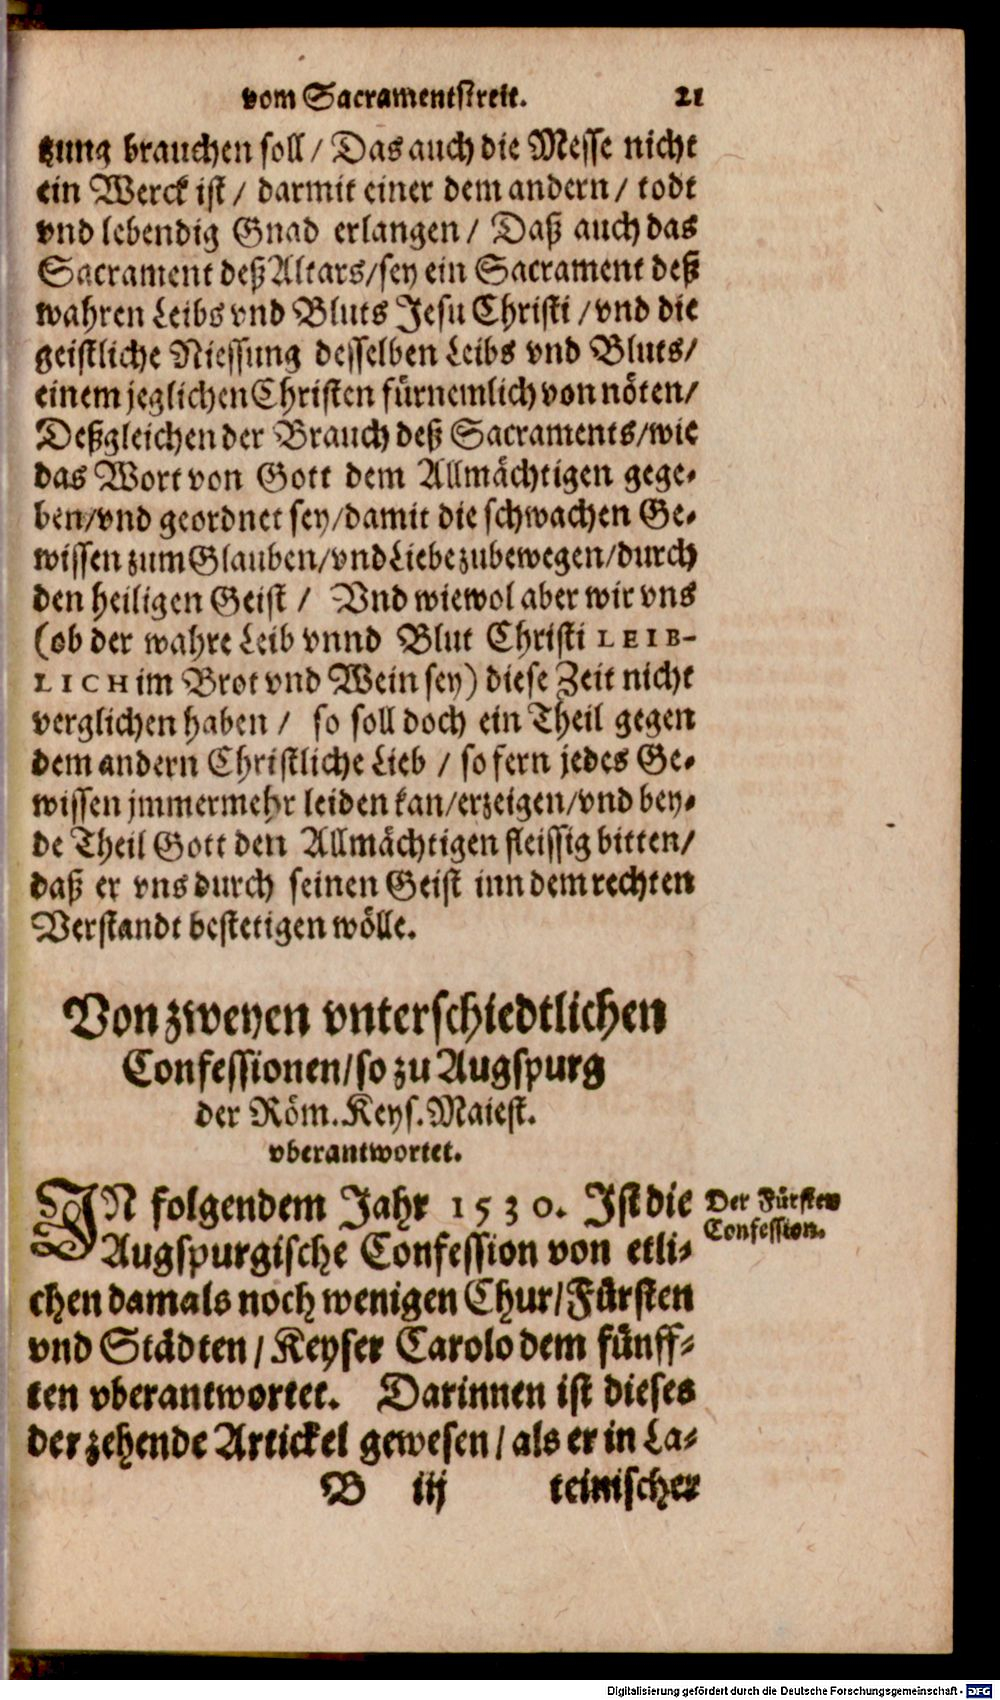 vom Sacramentstreit. 21
tzung brauchen soll / Das auch die Messe nicht
ein Werck ist / darmit einer dem andern / todt
vnd lebendig Gnad erlangen / Daß auch das
Sacrament deß Altars/sey ein Sacrament deß
wahren Leibs vnd Bluts Jesu Christi / vnd die
geistliche Niessung desselben Leibs vnd Bluts/
einem jeglichen Christen fürnemlich von nöten/
Deßgleichen der Brauch deß Sacraments/wie
das Wort von Gott dem Allmächtigen gege-
ben/vnd geordnet sey/damit die schwachen Ge-
wissen zum Glauben/vnd Liebe zubewegen/durch
den heiligen Geist / Vnd wiewol aber wir vns
(ob der wahre Leib vnnd Blut Christi LEIB-
LICH im Brot vnd Wein sey) diese Zeit nicht
verglichen haben / so soll doch ein Theil gegen
dem andern Christliche Lieb / so fern jedes Ge-
wissen jmmermehr leiden kan/erzeigen/vnd bey-
de Theil Gott den Allmächtigen fleissig bitten/
daß er vns durch seinen Geist inn dem rechten
Verstandt bestetigen wölle.
Von zweyen vnterschiedtlichen
Confessionen/so zu Augspurg
der Röm. Keys. Maiest.
vberantwortet.
IN folgendem Jahr 1530. Ist die
Der Fürsten
Confession.
Augspurgische Confession von etli-
chen damals noch wenigen Chur/Fürsten
vnd Städten / Keyser Carolo dem fünff-
ten vberantwortet. Darinnen ist dieses
der zehende Artickel gewesen / als er in La-
B iij teinischer
Digitalisierung gefördert durch die Deutsche Forschungsgemeinschaft - DFG